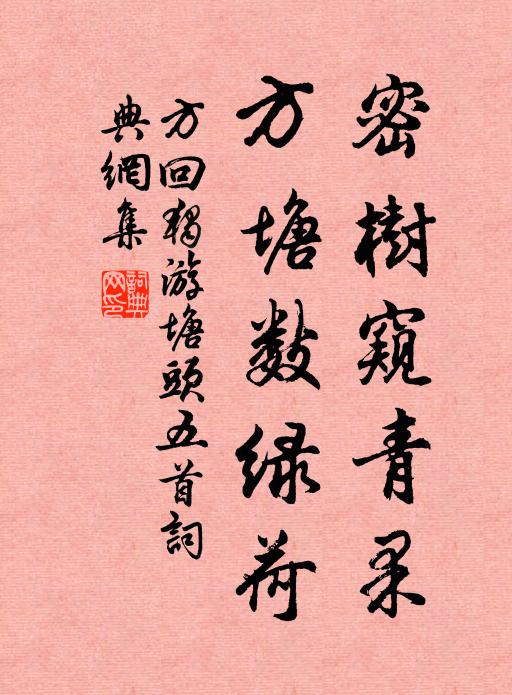 密樹窺青果
方塘數緑荷
方回獨游塘頭五首詞
典網集
詞典網印